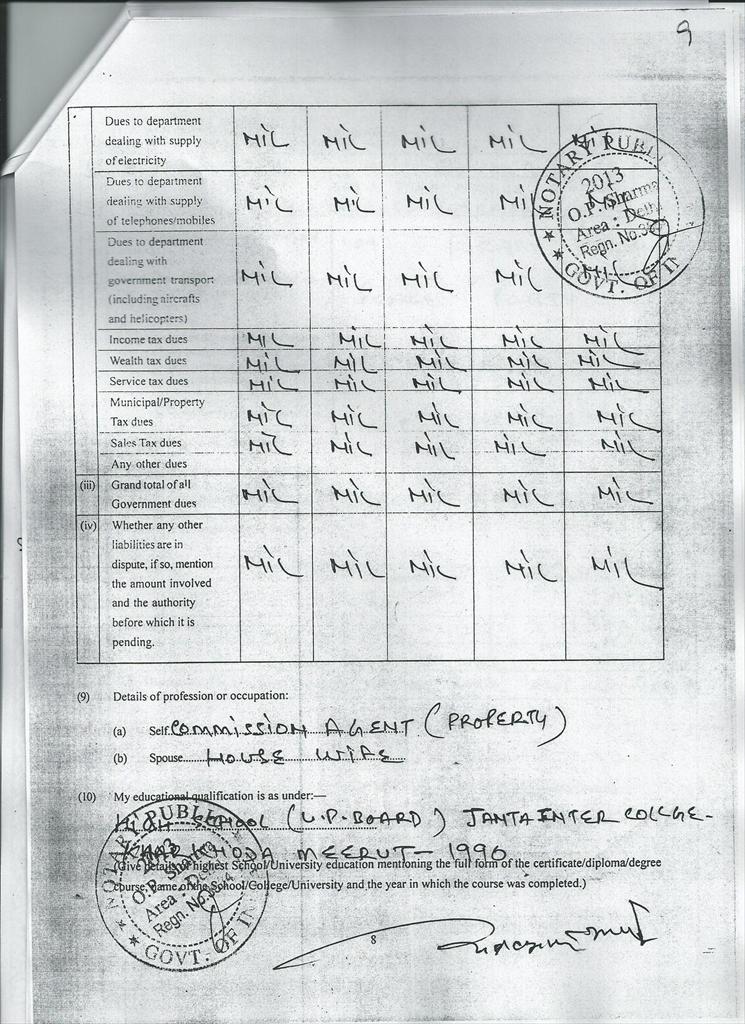 9
Dues to department
dealing with supply
of electricity
NIL NIL NIL NIL NIL
Dues to department
dealing with supply
of telephones/mobiles
NIL NIL NIL NIL
Dues to department
dealing with
government transport
(including aircrafts
and helicopters)
NIL NIL NIL NIL NIL
NOTARY PUBLI
2013
O.P. Sharma
Area : Delhi
Regn. No.
GOVT. OF IN
Income tax dues NIL NIL NIL NIL NIL
Wealth tax dues NIL NIL NIL NIL NIL
Service tax dues NIL NIL NIL NIL NIL
Municipal/Property
Tax dues NIL NIL NIL NIL NIL
Sales Tax dues NIL NIL NIL NIL NIL
Any other dues
(iii) Grand total of all
Government dues NIL NIL NIL NIL NIL
(iv) Whether any other
liabilities are in
dispute, if so, mention
the amount involved
and the authority
before which it is
pending.
NIL NIL NIL NIL NIL
(9) Details of profession or occupation:
(a) Self. COMMISSION AGENT (PROPERTY)
(b) Spouse HOUSE WIFE
(10) My educational qualification is as under:—
HIGH SCHOOL (U.P. BOARD) JANTA INTER COLLGE-
MEERUT - 1990
(Give details of highest School/University education mentioning the full form of the certificate/diploma/degree
course, name of the School/College/University and the year in which the course was completed.)
NOTARY PUBLI
O.P. Sharma
Area : Delhi
Regn. No.
GOVT. OF IN
8